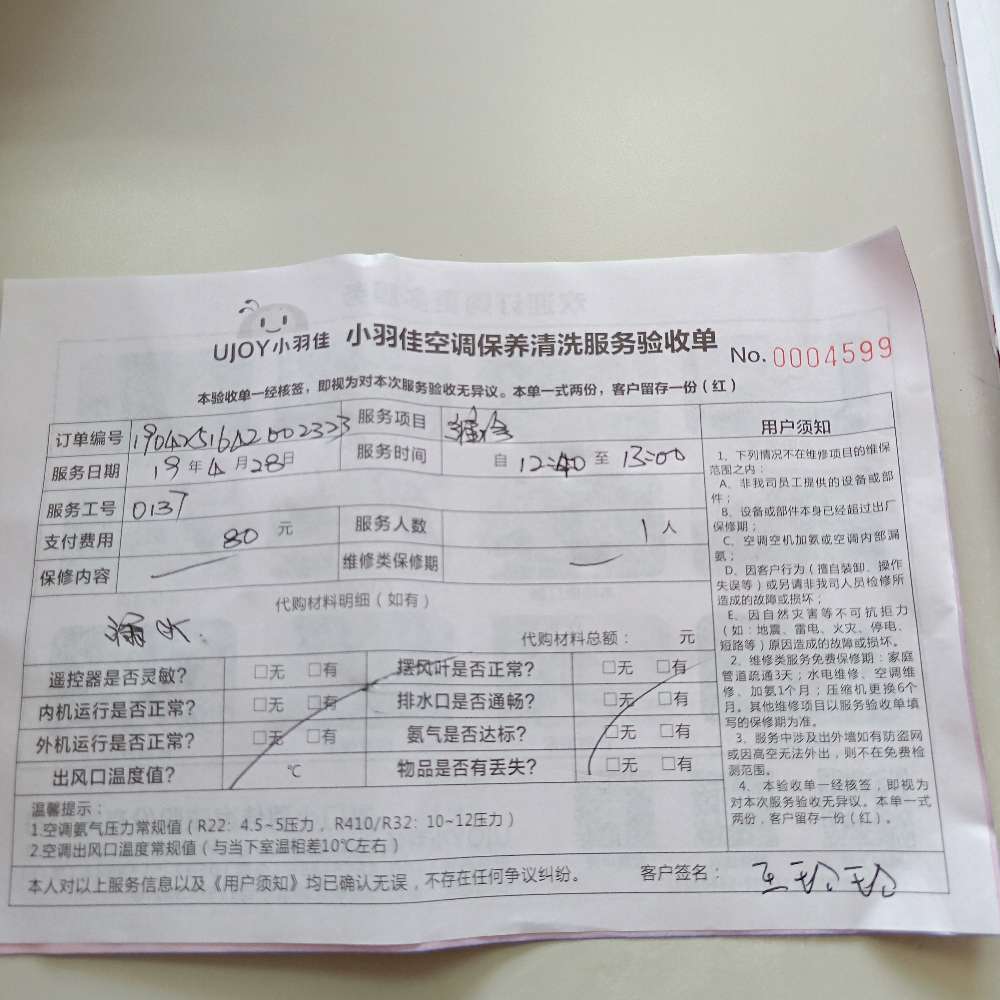 UJOY小羽佳 小羽佳空调保养清洗服务验收单 No. 0004599
本验收单一经核签，即视为对本次服务验收无异议。本单一式两份，客户留存一份（红）
订单编号 服务项目
服务日期 19 年 4 月 28 日 服务时间 自 12:40 至 13:00
服务工号 0137
支付费用 80 元 服务人数 1 人
保修内容 维修类保修期
代购材料明细（如有）
漏水.
代购材料总额： 元
遥控器是否灵敏? □无 □有 摆风叶是否正常? □无 □有
内机运行是否正常? □无 □有 排水口是否通畅? □无 □有
外机运行是否正常? □无 □有 氨气是否达标? □无 □有
出风口温度值? ℃ 物品是否有丢失? □无 □有
温馨提示：
1.空调氨气压力常规值（R22：4.5~5压力，R410/R32：10~12压力）
2.空调出风口温度常规值（与当下室温相差10℃左右）
本人对以上服务信息以及《用户须知》均已确认无误，不存在任何争议纠纷。 客户签名：
用户须知
1、下列情况不在维修项目的维保
范围之内：
A、非我司员工提供的设备或部
件；
B、设备或部件本身已经超过出厂
保修期；
C、空调空机加氨或空调内部漏
氨；
D、因客户行为（擅自装卸、操作
失误等）或另请非我司人员检修所
造成的故障或损坏；
E、因自然灾害等不可抗拒力
（如：地震、雷电、火灾、停电、
短路等）原因造成的故障或损坏。
2、维修类服务免费保修期：家庭
管道疏通3天；水电维修、空调维
修、加氨1个月；压缩机更换6个
月。其他维修项目以服务验收单填
写的保修期为准。
3、服务中涉及出外墙如有防盗网
或因高空无法外出，则不在免费检
测范围。
4、本验收单一经核签，即视为
对本次服务验收无异议。本单一式
两份，客户留存一份（红）。